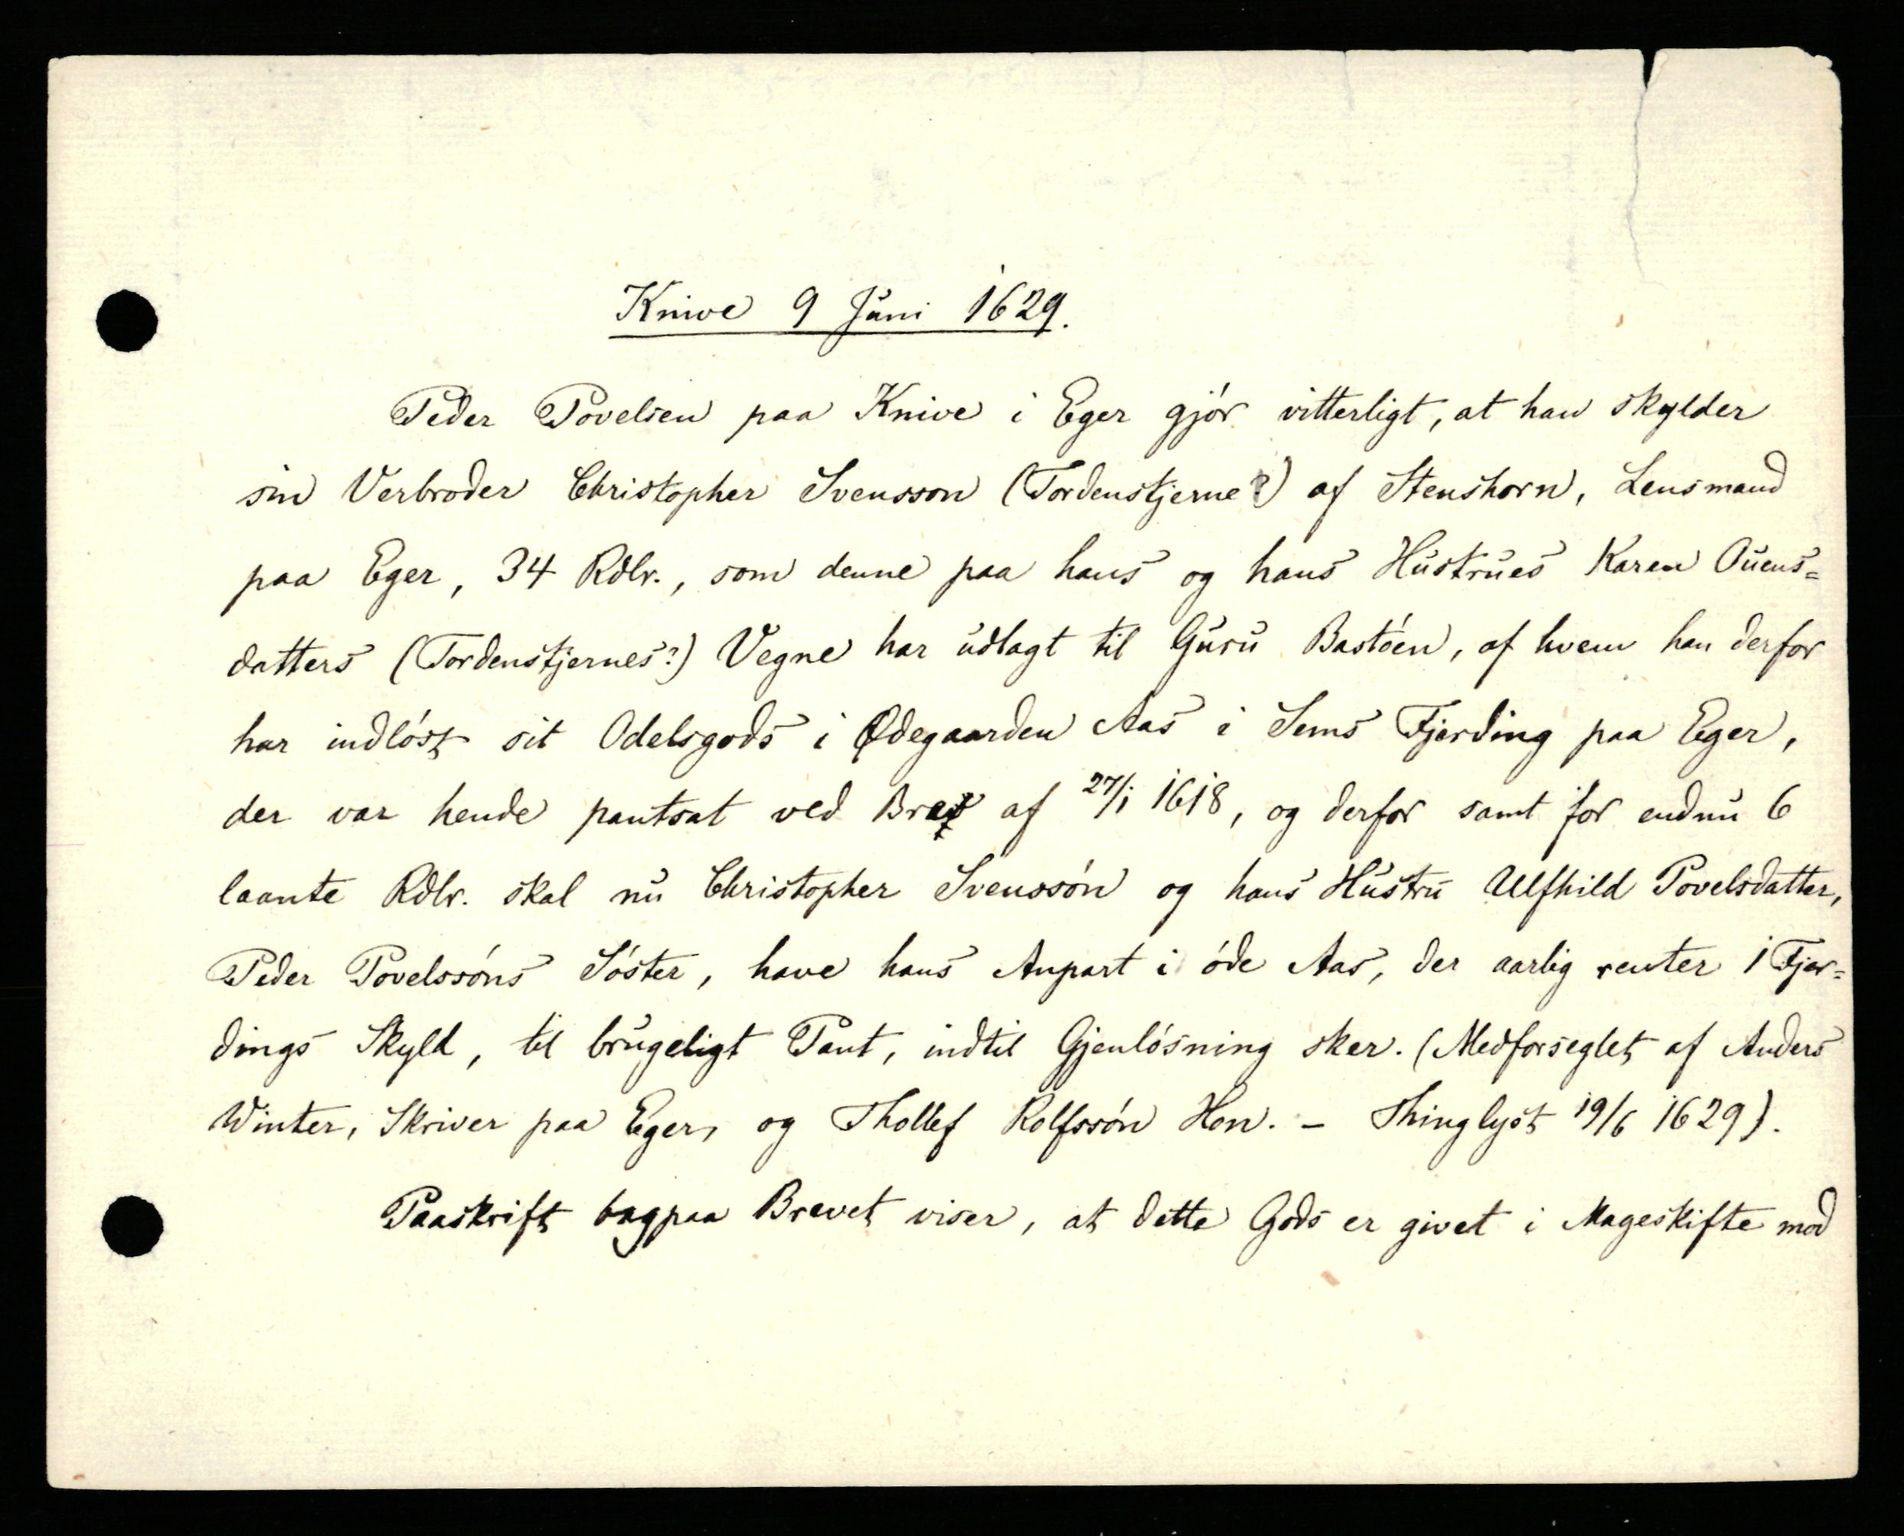 Knive 9 Juni 1629.
Peder Povelsen paa Knive i Eger gjór vitterligt, at han skylder
sin Verbroder Christopher Svensson (Tordenstjerne?) af Stenshorn, Lensmand
paa Eger, 34 Rdlr., som denne paa hans og hans Hustrues Karen Ouens=
datters (Tordenstjernes?) Vegne har udlagt til Guru Bastóen, af hvem han derfor
har indlóst sit Odelsgods i Ødegaarden Aas i Sems Fjerding paa Eger,
der var hende pantsat ved af 27/1 1618, og derfor samt for endnu 6
laante Rdlr. skal nu Christopher Svenssón og hans Hustru Ulfhild Povelsdatter,
Peder Povelssóns Sóster, have hans Anpart i óde Aas, der aarlig renter 1 Fjer=
dings Skyld, til brugeligt Pant, indtil Gjenlósning sker. (Medforseglet af Anders
Winter, Skriver paa Eger, og Thollef Rolfssón Hon. – Thinglyst 19/6 1629).
Paaskrift bagpaa Brevet viser, at dette Gods er givet i Mageskifte mod